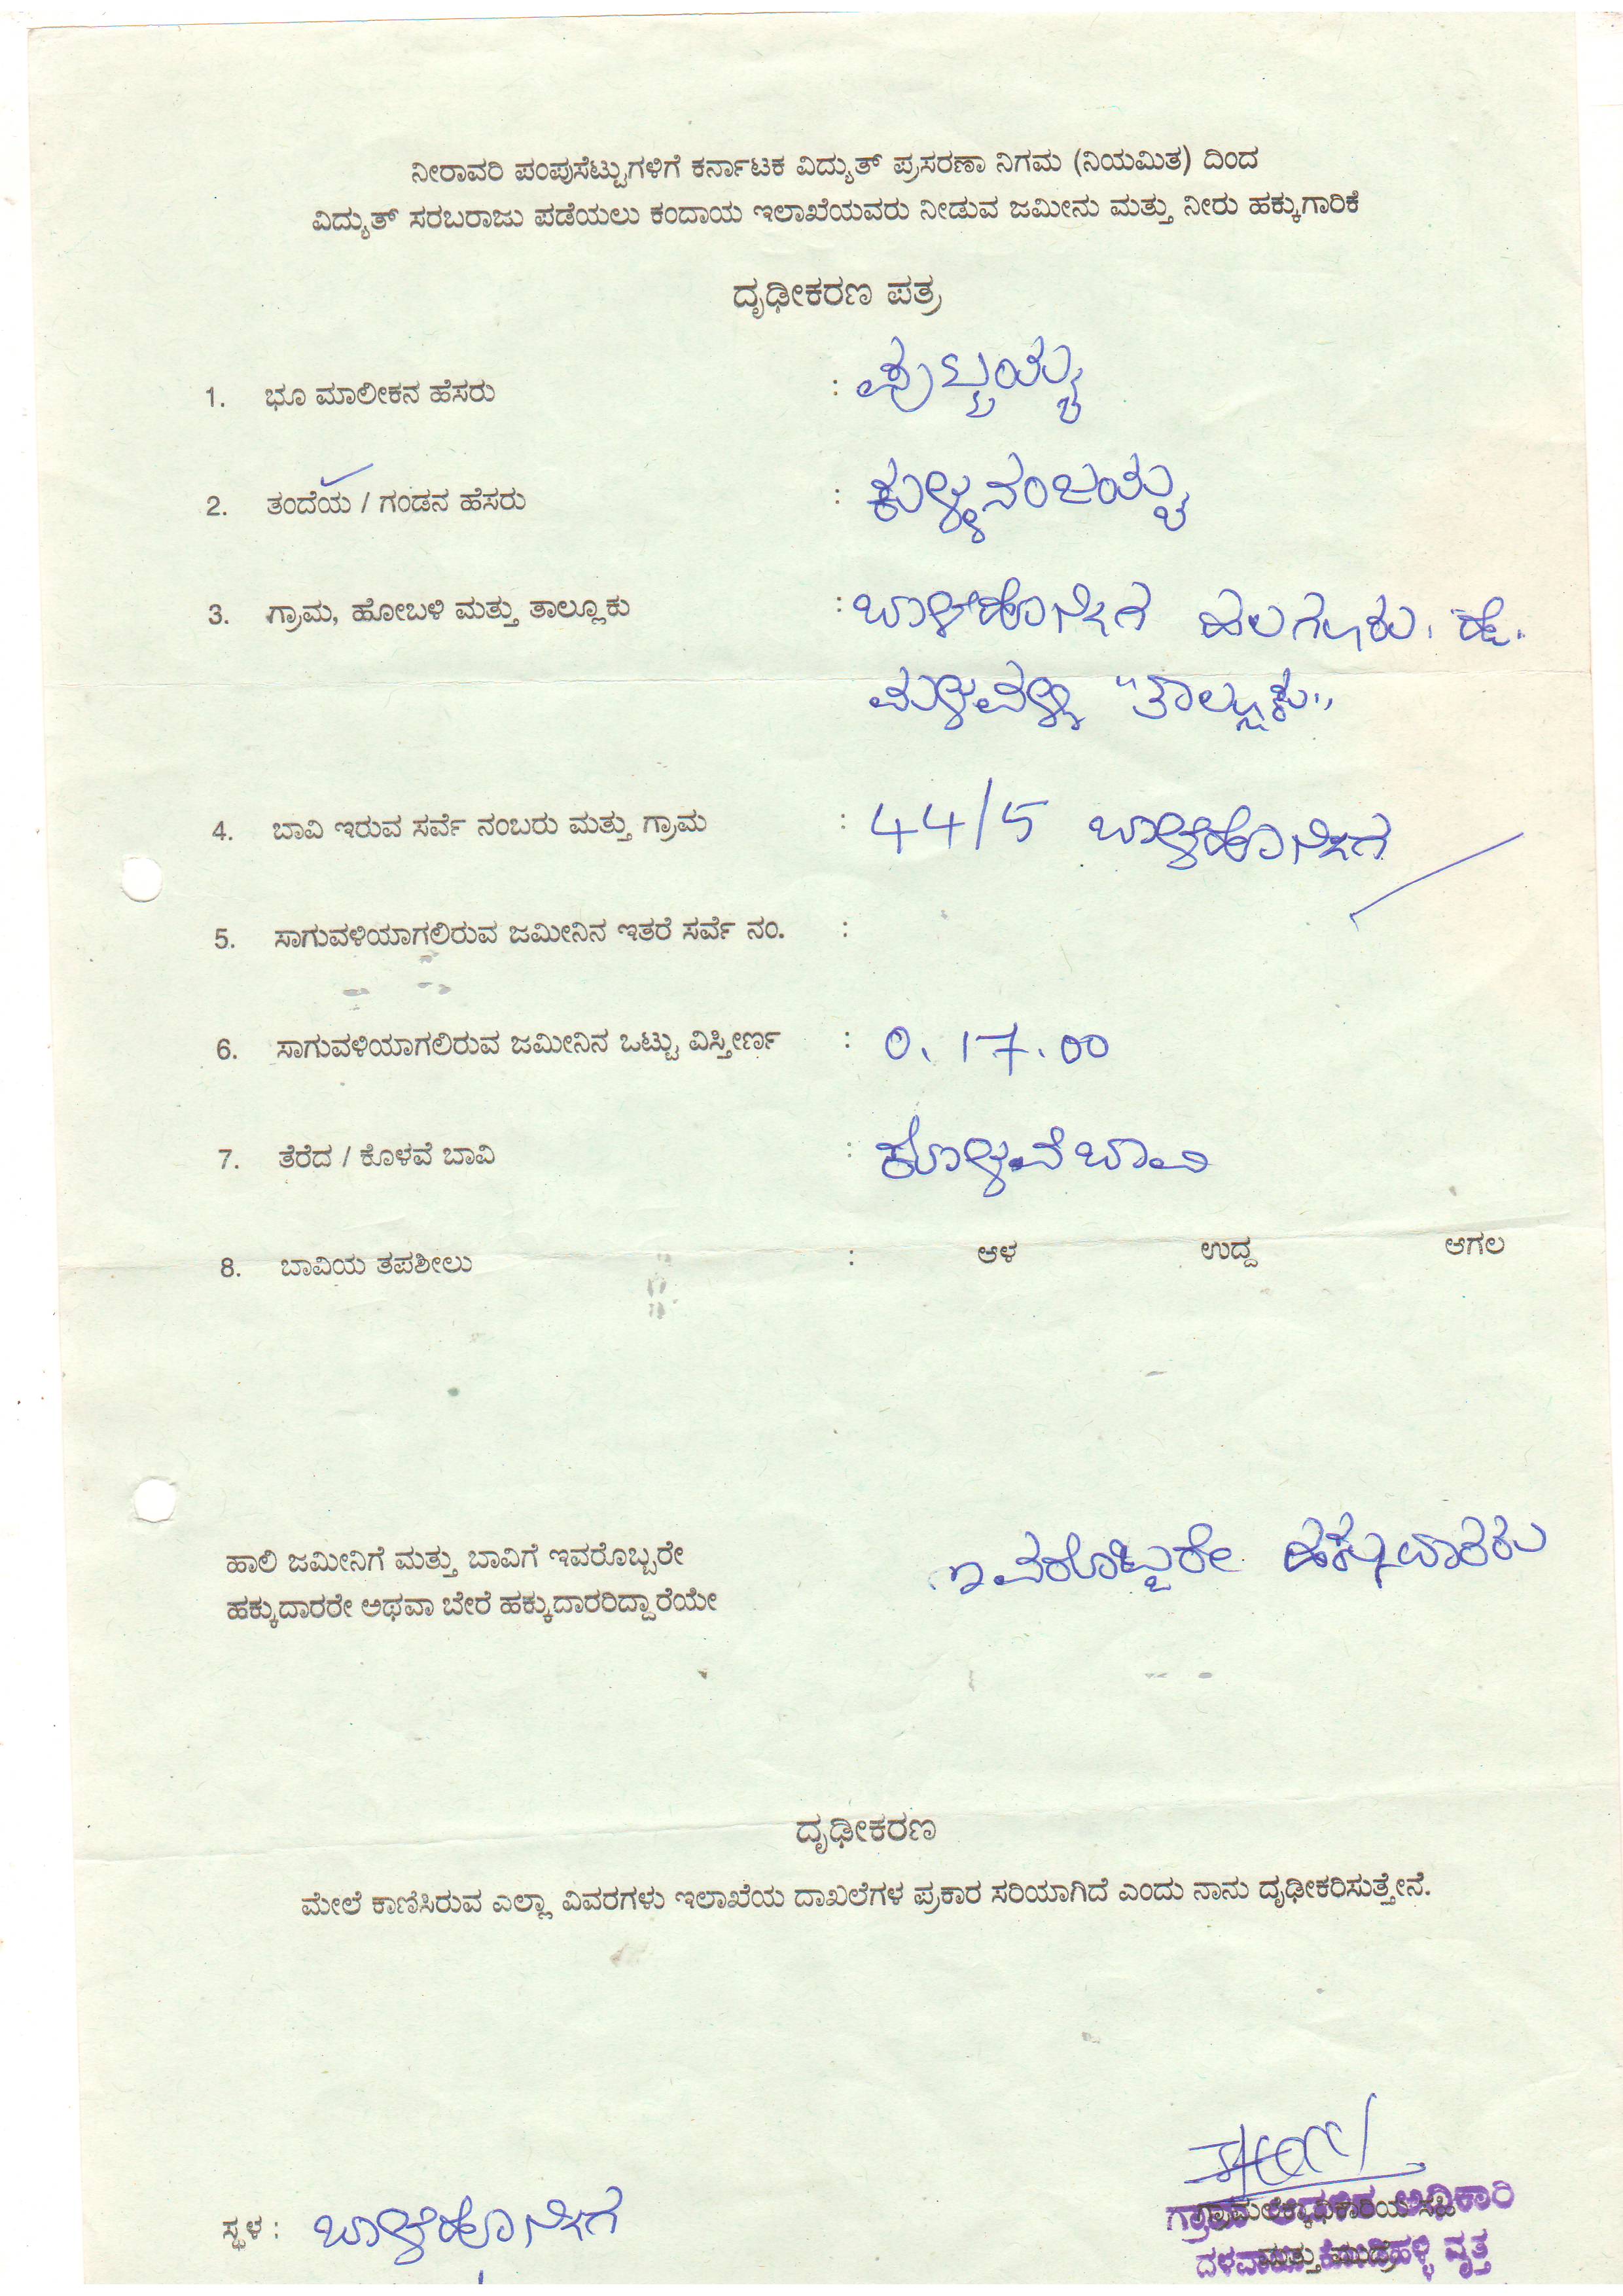 ನೀರಾವರಿ ಪಂಪುಸೆಟ್ಟುಗಳಿಗೆ ಕರ್ನಾಟಕ ವಿದ್ಯುತ್ ಪ್ರಸರಣಾ ನಿಗಮ (ನಿಯಮಿತ) ದಿಂದ
ವಿದ್ಯುತ್ ಸರಬರಾಜು ಪಡೆಯಲು ಕಂದಾಯ ಇಲಾಖೆಯವರು ನೀಡುವ ಜಮೀನು ಮತ್ತು ನೀರು ಹಕ್ಕುಗಾರಿಕೆ
ದೃಢೀಕರಣ ಪತ್ರ
1. ಭೂ ಮಾಲೀಕನ ಹೆಸರು : ಪುಟ್ಟಯ್ಯ
2. ತಂದೆಯ / ಗಂಡನ ಹೆಸರು : ಕುಳ್ಳನಂಜಯ್ಯ
3. ಗ್ರಾಮ, ಹೋಬಳಿ ಮತ್ತು ತಾಲ್ಲೂಕು : ಬಾಳೆಹೊನ್ನಿಗೆ ಹಲಗೂರು. ಹೋ.
ಮಳವಳ್ಳಿ "ತಾಲ್ಲೂಕು"
4. ಬಾವಿ ಇರುವ ಸರ್ವೆ ನಂಬರು ಮತ್ತು ಗ್ರಾಮ : 44/5 ಬಾಳೆಹೊನ್ನಿಗೆ
5. ಸಾಗುವಳಿಯಾಗಲಿರುವ ಜಮೀನಿನ ಇತರೆ ಸರ್ವೆ ನಂ. :
6. ಸಾಗುವಳಿಯಾಗಲಿರುವ ಜಮೀನಿನ ಒಟ್ಟು ವಿಸ್ತೀರ್ಣ : 0.17.00
7. ತೆರೆದ / ಕೊಳವೆ ಬಾವಿ : ಕೊಳವೆ ಬಾವಿ
8. ಬಾವಿಯ ತಪಶೀಲು : ಆಳ ಉದ್ದ ಅಗಲ
ಹಾಲಿ ಜಮೀನಿಗೆ ಮತ್ತು ಬಾವಿಗೆ ಇವರೊಬ್ಬರೇ
ಹಕ್ಕುದಾರರೇ ಅಥವಾ ಬೇರೆ ಹಕ್ಕುದಾರರಿದ್ದಾರೆಯೇ
ಇವರೊಬ್ಬರೇ ಹಕ್ಕುದಾರರು
ದೃಢೀಕರಣ
ಮೇಲೆ ಕಾಣಿಸಿರುವ ಎಲ್ಲಾ ವಿವರಗಳು ಇಲಾಖೆಯ ದಾಖಲೆಗಳ ಪ್ರಕಾರ ಸರಿಯಾಗಿದೆ ಎಂದು ನಾನು ದೃಢೀಕರಿಸುತ್ತೇನೆ.
ಗ್ರಾಮಲೆಕ್ಕಾಧಿಕಾರಿಯ ಸಹಿ
ಅಧಿಕಾರಿ
ಸ್ಥಳ : ಬಾಳೆಹೊನ್ನಿಗೆ
ಮತ್ತು ಮುದ್ರೆ
ವೃತ್ತ